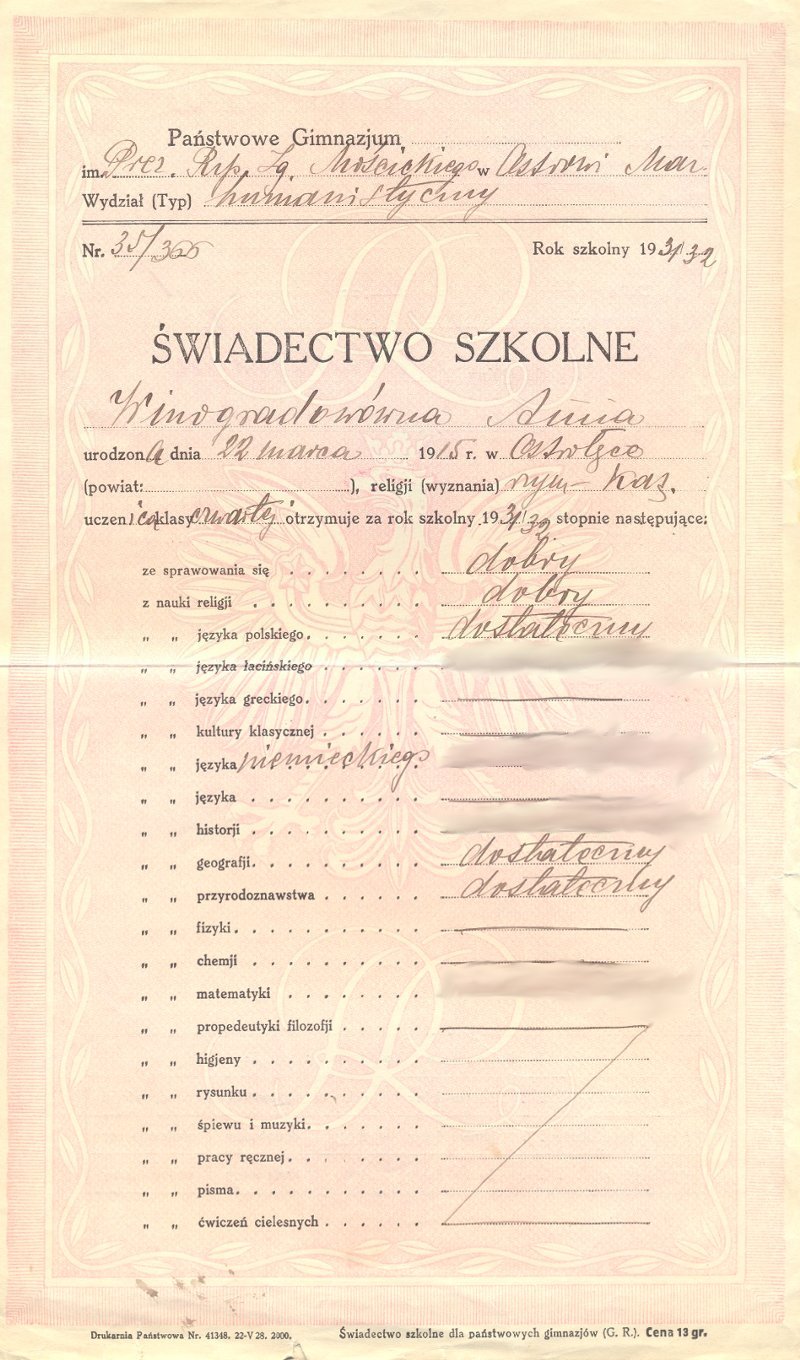 Państwowe Gimnazjum
im. Prez. Rzp. Ig. Mościckiego w Ostrowi Maz.
Wydział (Typ) humanistyczny
Nr. 35/366
Rok szkolny 1931/32
ŚWIADECTWO SZKOLNE
Winogradowówna Anna
urodzona dnia 22 marca 1915 r. w Ostrołęce
(powiat: ), religji (wyznania) rzym-kat.
uczenica klasy czwartej otrzymuje za rok szkolny 1931/32 stopnie następujące:
ze sprawowania się dobry
z nauki religji dobry
„ „ języka polskiego dostateczny
„ „ języka łacińskiego
„ „ języka greckiego
„ „ kultury klasycznej
„ „ języka niemieckiego
„ „ języka
„ „ historji
„ „ geografji dostateczny
„ „ przyrodoznawstwa dostateczny
„ „ fizyki
„ „ chemji
„ „ matematyki
„ „ propedeutyki filozofji
„ „ higjeny
„ „ rysunku
„ „ śpiewu i muzyki
„ „ pracy ręcznej
„ „ pisma
„ „ ćwiczeń cielesnych
Drukarnia Państwowa Nr. 41348. 22-V 28. 2000. Świadectwo szkolne dla państwowych gimnazjów (G. R.). Cena 13 gr.